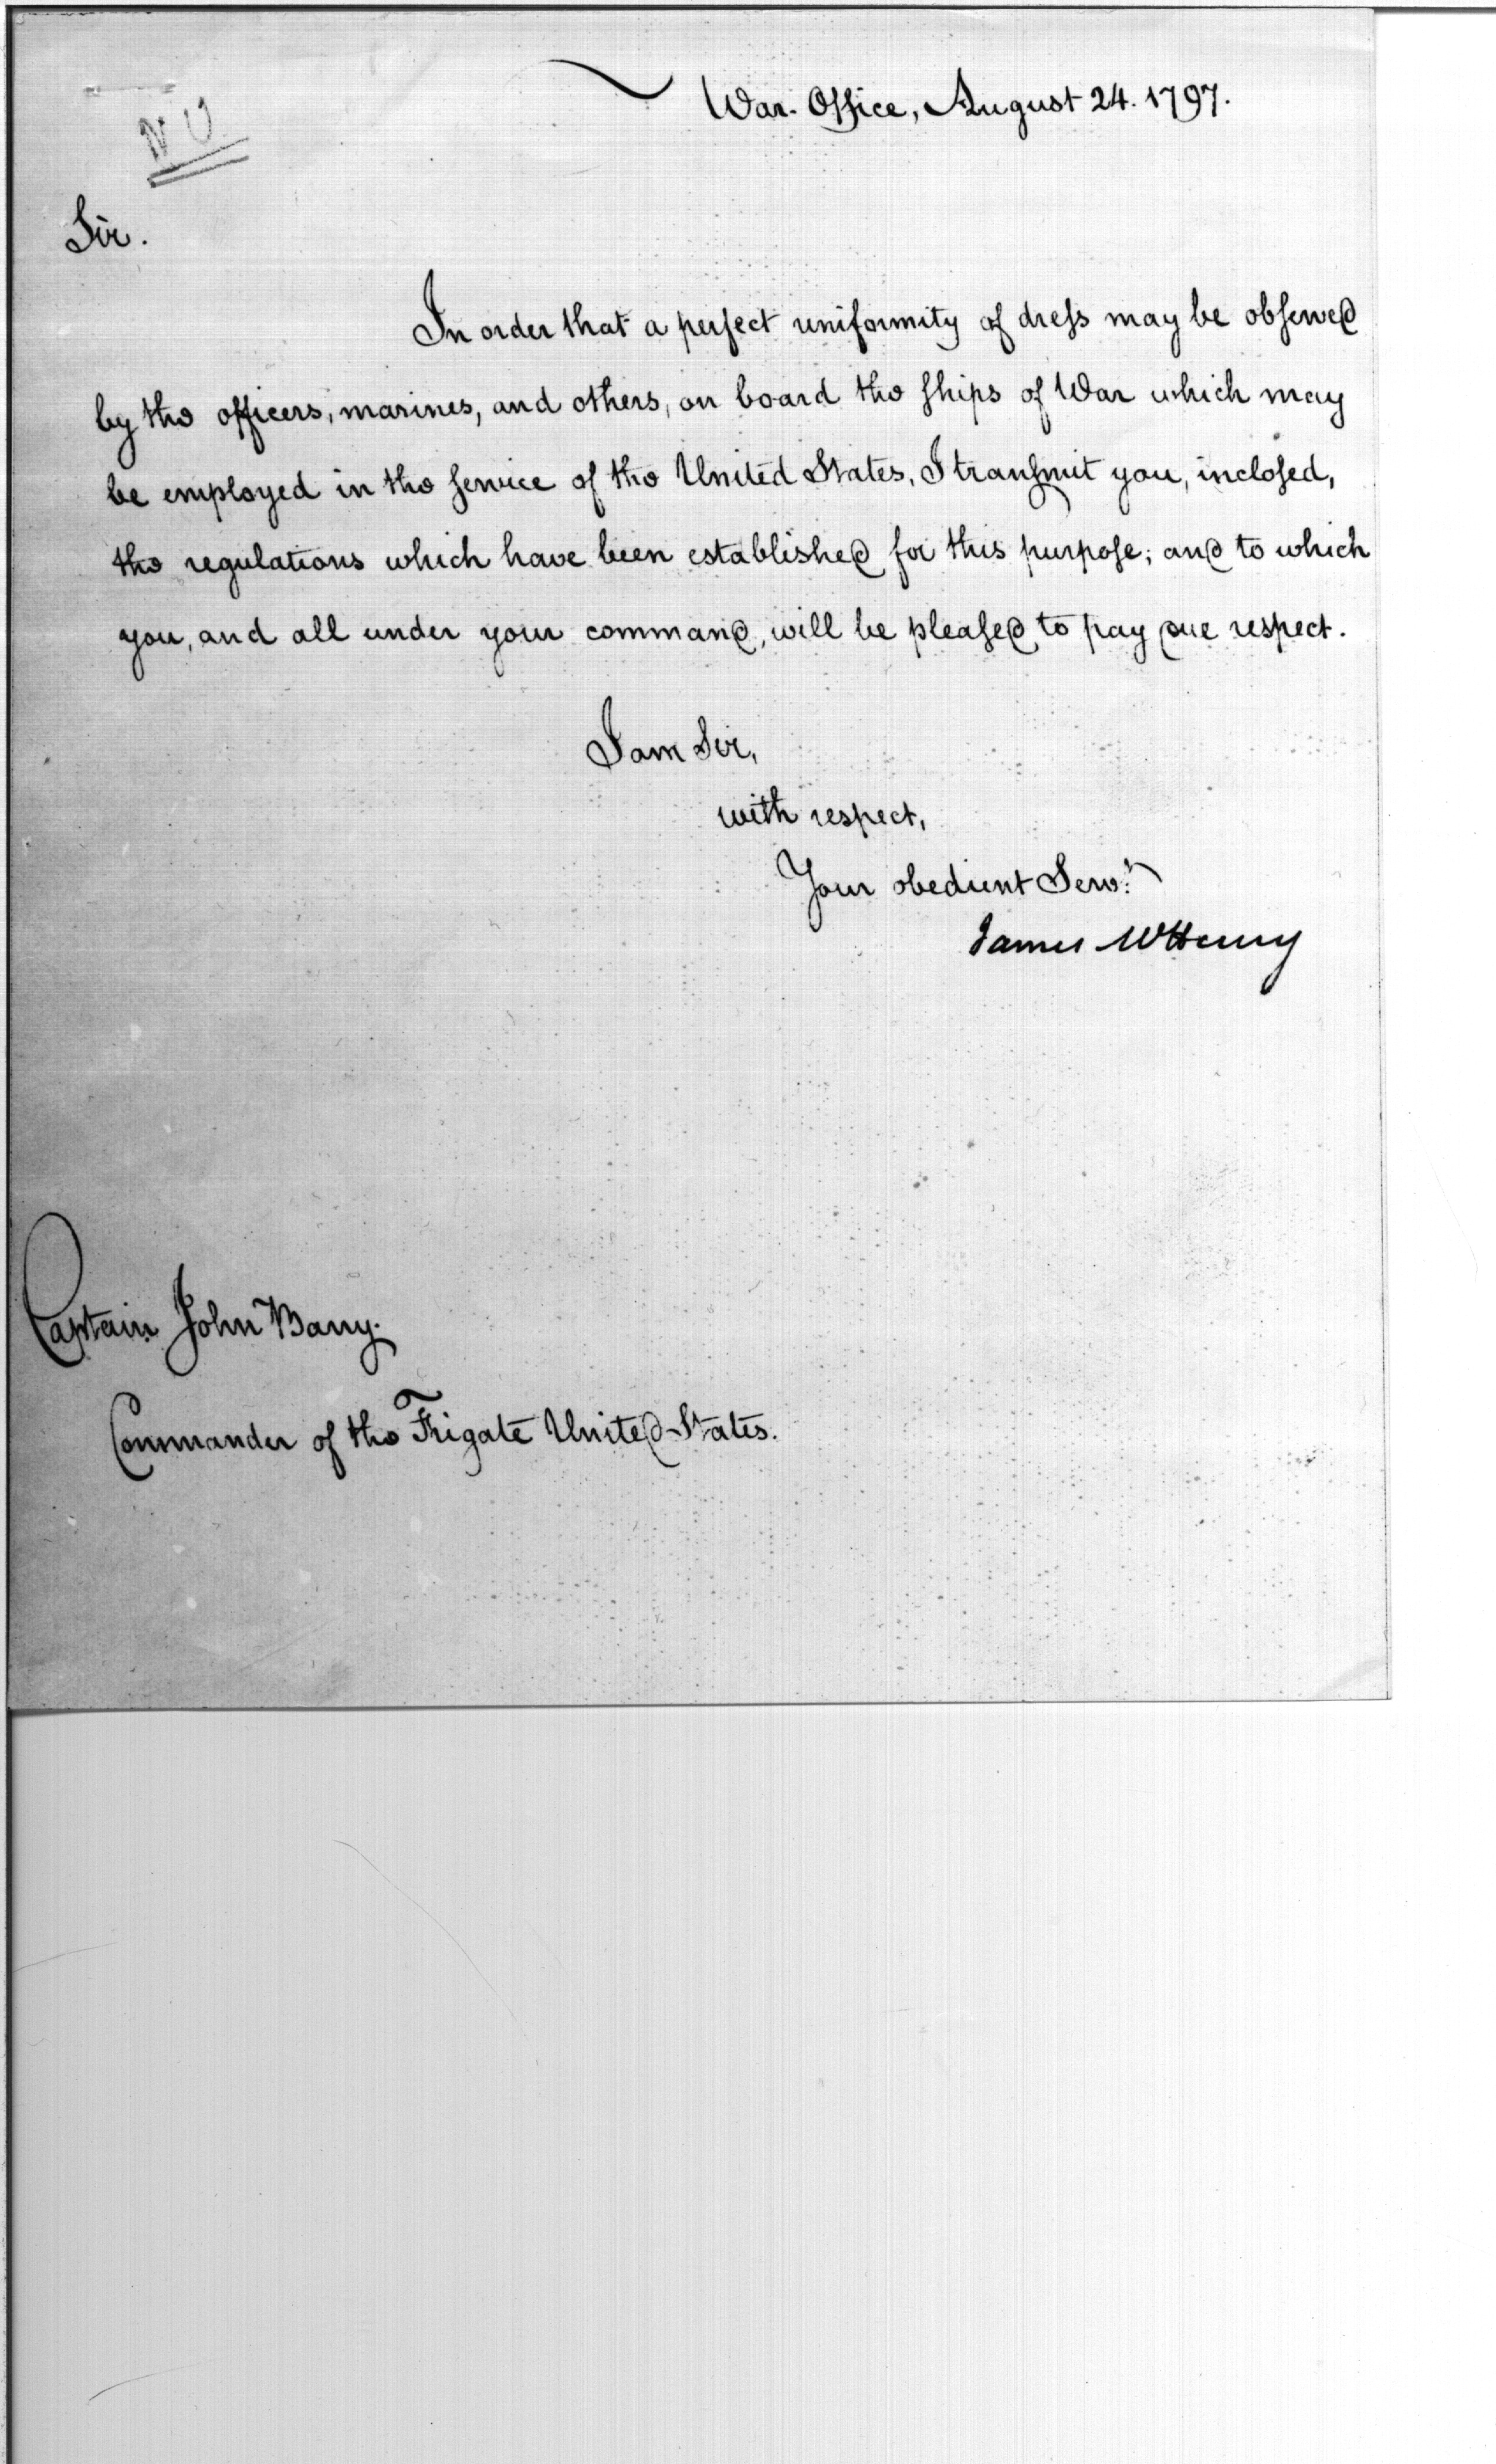 War-Office, August 24. 1797.
NU
Sir.
In order that a perfect uniformity of dress may be observed
by the officers, marines, and others, on board the ships of War which may
be employed in the service of the United States, I transmit you, inclosed,
the regulations which have been established for this purpose; and to which
you, and all under your command, will be pleased to pay due respect.
I am Sir,
with respect,
Your obedient Servt.
James McHenry
Captain John Barry.
Commander of the Frigate United States.